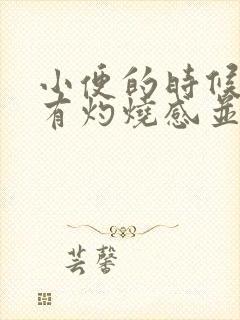 小便的時候
有灼燒感並
芸馨